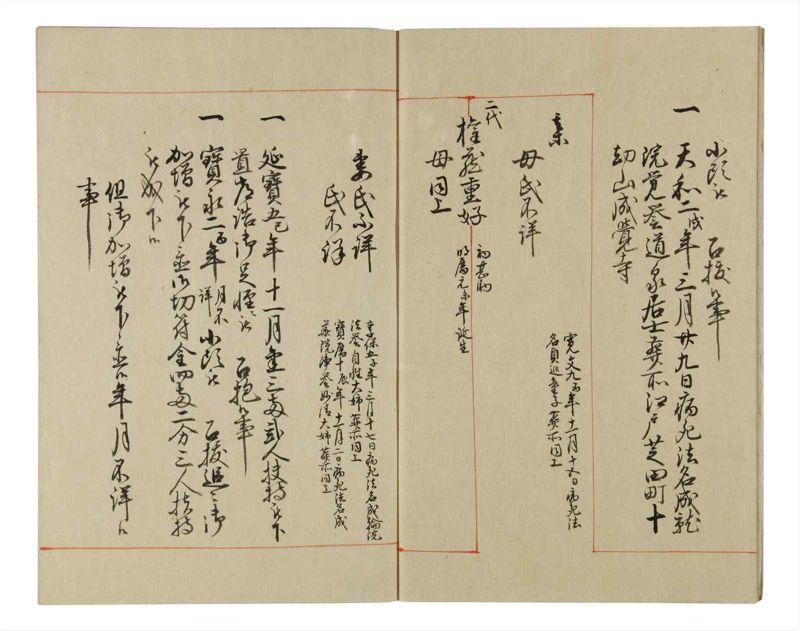 小頭江 召抜候事
一 天和二戌年三月廿九日病死法名成就
院覚誉道泉居士葬所江戸芝田町十
劫山成覚寺
妻
母氏不詳
寛文九酉年十二月十六日病死法
名貞 童子葬所同上
二代
権蔵重好
初甚助
明暦元未年誕生
母同上
妻氏不詳
氏不詳
享保五子年三月十七日病死法名成輪院
法誉自性大姉葬所同上
寳暦十辰年十二月二日病死法名成
葬所同上
一 延寳五巳年十一月金三両弐人扶持被下
置 御足軽江 召抱候事
一 寳永二酉年月不詳小頭江 召抜追々御
加増被下並御切符金四両二分三人扶持
被成下候
但御加増被下並候年月不詳候
事